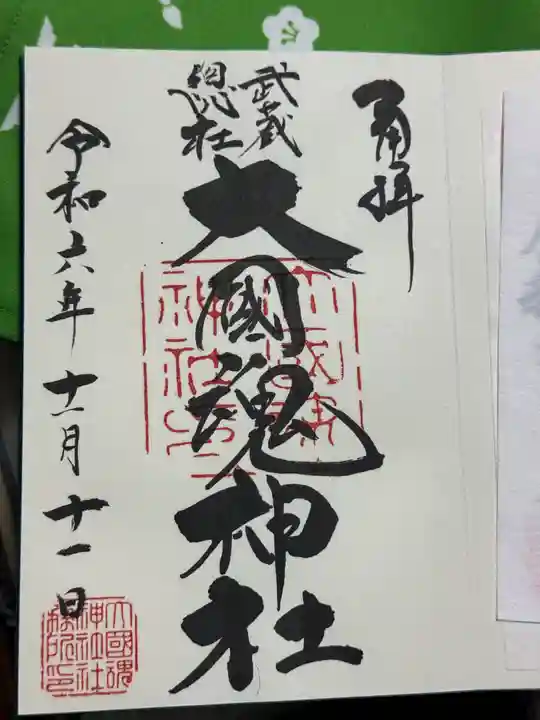 奉拝
武蔵
總社
大國魂神社
令和六年十一月十一日
大國魂
神社社
務所印